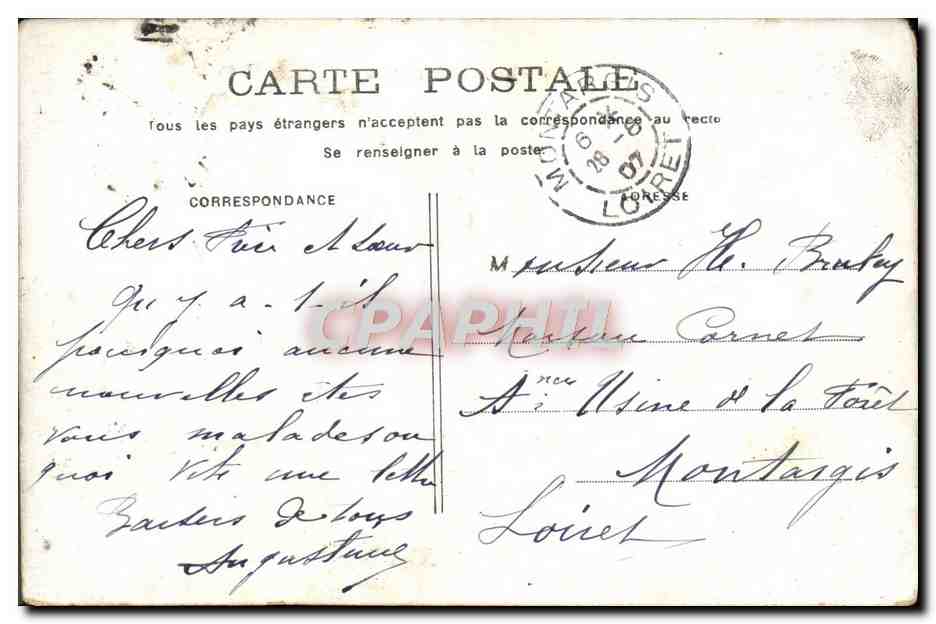 CARTE POSTALE
Tous les pays étrangers n'acceptent pas la correspondance au recto
Se renseigner à la poste.
MONTARGIS
LOIRET
28 07
CORRESPONDANCE
ADRESSE
Chers et Soeur
qu'y a-t-il
pourquoi aucune
nouvelles êtes
vous malades ou
quoi Vite une lettre
Baisers de tous
Augustine
Monsieur H.
Maison Cornet
Usine de la Forêt
Montargis
Loiret
CPAPHIL